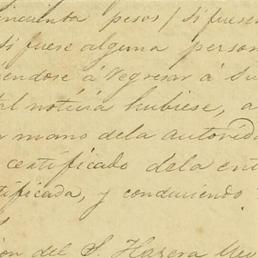 cincuenta pesos / Si fuese
Si fuese alguna person
endose á regresar á Su
tal noticia hubiese, a
mano dela autorida
certificado dela ent
tificada, y conduciendo
ion del S.